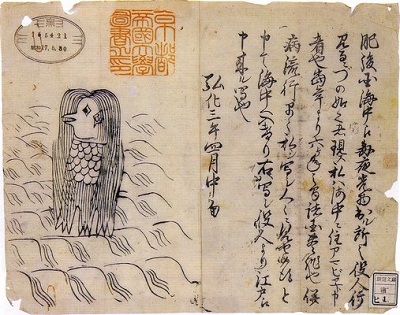 肥後国海中え毎夜光物出ル所之役人行
見るニづの如之者現ス私ハ海中ニ住アマビヱト申
者也当年より六ケ年之間諸国豊作也併
病流行早々私シ写シ人々ニ見セ候得と
申て海中へ入けり右写シ役人より江戸え
申来ル写也
弘化三年四月中旬
京都
帝國大學
圖書之印